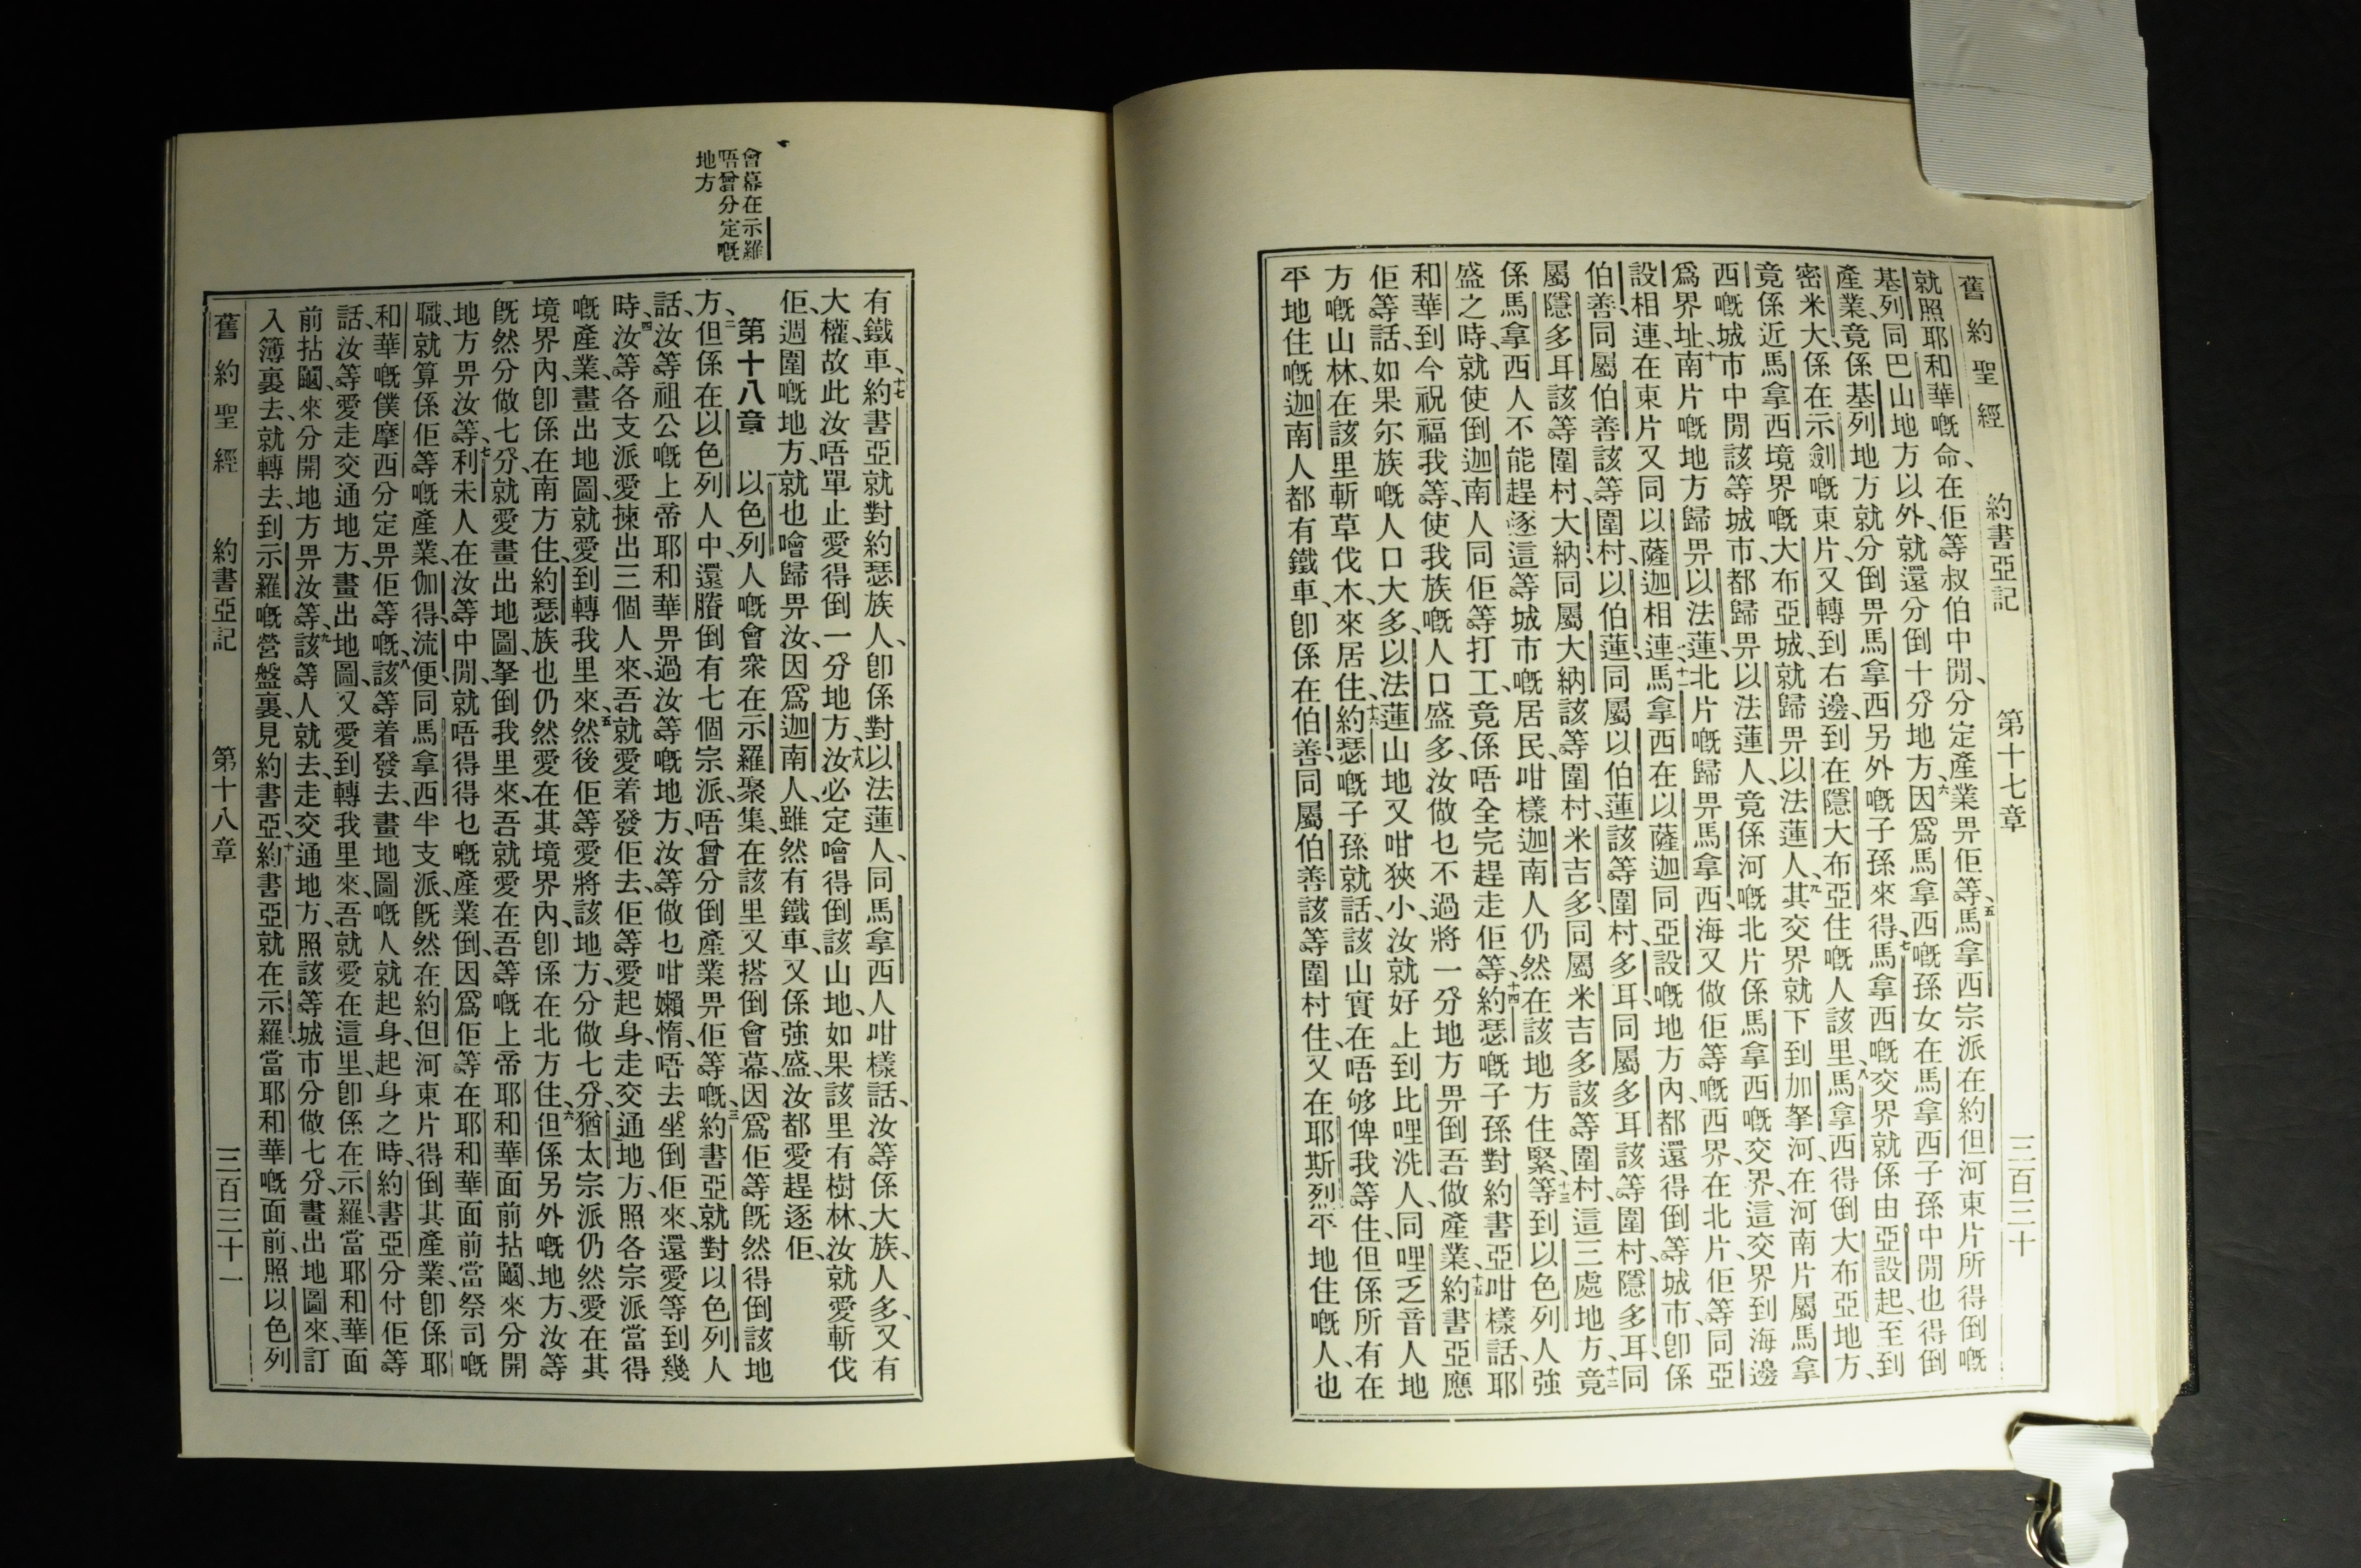 舊約聖經 約書亞記 第十七章 三百三十
就照耶和華嘅命、在佢等叔伯中間、分定產業畀佢等、五馬拿西宗派在約但河東片所得倒嘅
基列同巴山地方以外、就還分倒十分地方、六因爲馬拿西嘅孫女在馬拿西子孫中間也得倒
產業、竟係基列地方就分倒畀馬拿西另外嘅子孫來得、七馬拿西嘅交界就係由亞設起、至到
密米大、係在示劍嘅東片又轉到右邊、到在隱大布亞住嘅人該里、八馬拿西得倒大布亞地方、
竟係近馬拿西境界嘅大布亞城、就歸畀以法蓮人、九其交界就下到加拏河、在河南片屬馬拿
西嘅城市中間該等城市、都歸畀以法蓮人、竟係河嘅北片係馬拿西嘅交界、這交界到海邊
爲界址、十南片嘅地方歸畀以法蓮、北片嘅歸畀馬拿西、海又做佢等嘅西界、在北片、佢等同亞
設相連在東片又同以薩迦相連、十一馬拿西在以薩迦同亞設嘅地方內、都還得倒等城市、卽係
伯善同屬伯善該等圍村、以伯蓮、同屬以伯蓮該等圍村、多耳、同屬多耳該等圍村、隱多耳、同
屬隱多耳該等圍村、大納同屬大納該等圍村、米吉多、同屬米吉多該等圍村、這三處地方、十二竟
係馬拿西人不能趕逐這等城市嘅居民、咁樣迦南人仍然在該地方住緊、十三等到以色列人強
盛之時、就使倒迦南人同佢等打工、竟係唔全完趕走佢等、十四約瑟嘅子孫對約書亞咁樣話、耶
和華到今祝福我等、使我族嘅人口盛多、汝做乜不過將一分地方畀倒吾做產業、十五約書亞應
佢等話、如果尔族嘅人口大多、以法蓮山地又咁狹小、汝就好上到比哩洗人、同哩乏音人地
方嘅山林、在該里斬草伐木、來居住、十六約瑟嘅子孫就話、該山實在唔够俾我等住、但係所有在
平地住嘅迦南人都有鐵車、卽係在伯善、同屬伯善該等圍村住、又在耶斯烈平地住嘅人、也
有鐵車、十七約書亞就對約瑟族人、卽係對以法蓮人、同馬拿西人咁樣話、汝等係大族、人多、又有
大權、故此汝唔單止愛得倒一分地方、十八汝必定噲得倒該山地、如果該里有樹林、汝就愛斬伐
佢、週圍嘅地方、就也噲歸畀汝、因爲迦南人、雖然有鐵車、又係強盛、汝都愛趕逐佢、
會幕在示羅
唔曾分定嘅
地方
第十八章 一以色列人嘅會衆在示羅聚集、在該里又搭倒會幕、因爲佢等旣然得倒該地
方、二但係在以色列人中、還賸倒有七個宗派、唔曾分倒產業畀佢等嘅、三約書亞就對以色列人
話、汝等祖公嘅上帝耶和華畀過汝等嘅地方、汝等做乜咁嬾惰、唔去坐倒佢來、還愛等到幾
時、四汝等各支派愛揀出三個人來、吾就愛着發佢去、佢等愛起身、走交通地方、照各宗派當得
嘅產業、畫出地圖、就愛到轉我里來、五然後佢等愛將該地方、分做七分、猶太宗派仍然愛在其
境界內、卽係在南方住、約瑟族也仍然愛在其境界內、卽係在北方住、六但係另外嘅地方、汝等
旣然分做七分、就愛畫出地圖、拏倒我里來、吾就愛在吾等嘅上帝耶和華面前拈鬮、來分開
地方畀汝等、七利未人在汝等中間、就唔得得乜嘅產業倒、因爲佢等在耶和華面前當祭司嘅
職、就算係佢等嘅產業、伽得、流便、同馬拿西半支派、旣然在約但河東片、得倒其產業、卽係耶
和華嘅僕摩西分定畀佢等嘅、八該等着發去、畫地圖嘅人就起身、起身之時、約書亞分付佢等
話、汝等愛走交通地方、畫出地圖、又愛到轉我里來、吾就愛在這里、卽係在示羅、當耶和華面
前拈鬮、來分開地方畀汝等、九該等人就去、走交通地方、照該等城市分做七分、畫出地圖來、訂
入簿裏去、就轉去、到示羅嘅營盤裏、見約書亞、十約書亞就在示羅當耶和華嘅面前、照以色列
舊約聖經 約書亞記 第十八章 三百三十一